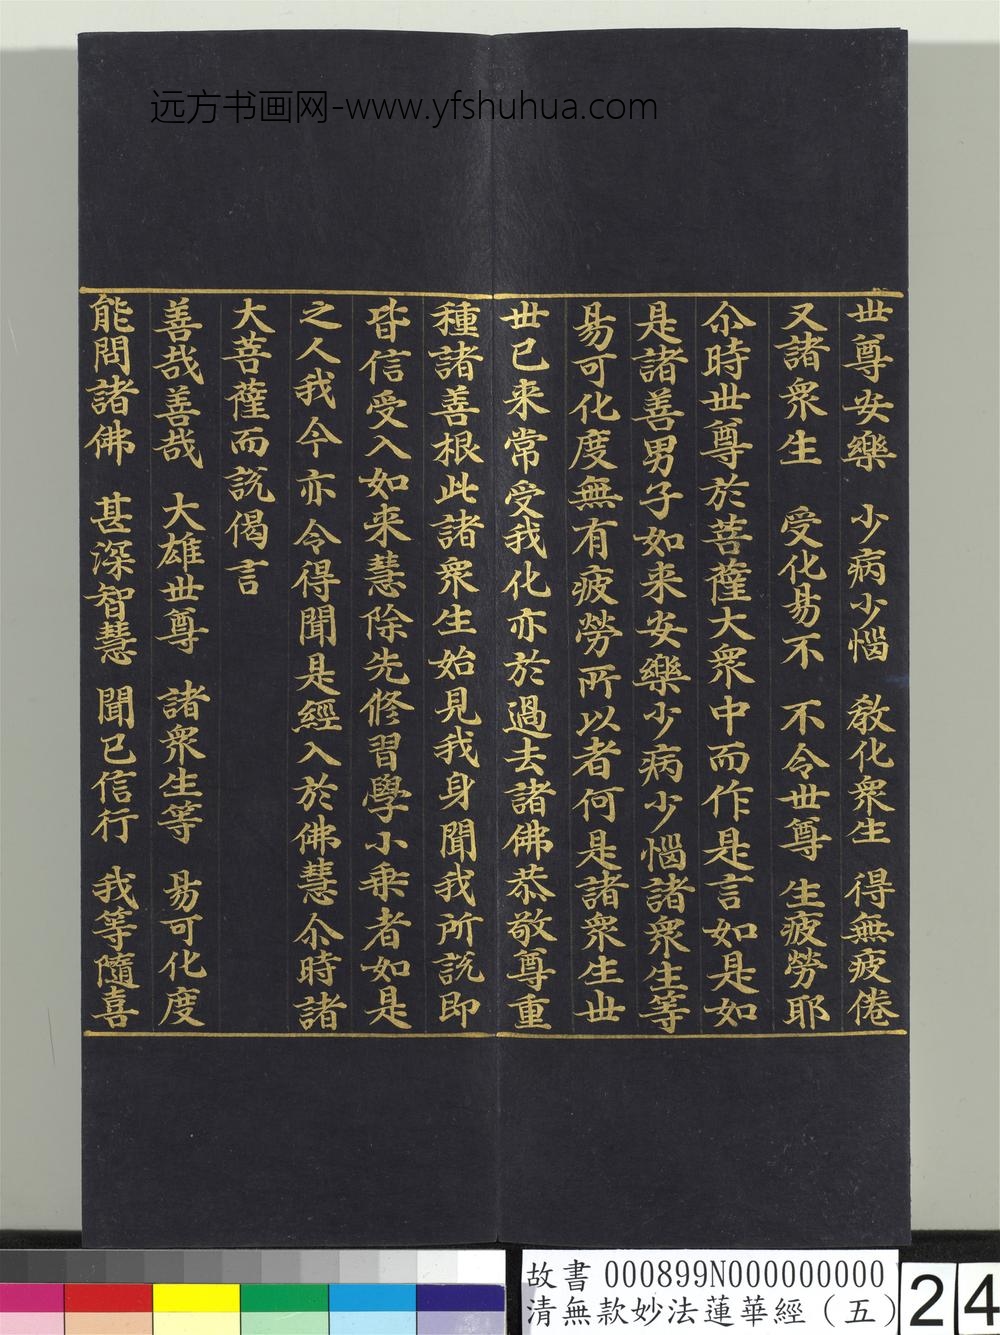 远方书画网-www.yfshuhua.com
世尊安樂　少病少惱　教化衆生　得無疲倦
又諸衆生　受化易不　不令世尊　生疲勞耶
尒時世尊於菩薩大衆中而作是言如是如
是諸善男子如来安樂少病少惱諸衆生等
易可化度無有疲勞所以者何是諸衆生世
世已来常受我化亦於過去諸佛恭敬尊重
種諸善根此諸衆生始見我身聞我所説即
皆信受入如来慧除先修習學小乘者如是
之人我今亦令得聞是經入於佛慧尒時諸
大菩薩而説偈言
善哉善哉　大雄世尊　諸衆生等　易可化度
能問諸佛　甚深智慧　聞已信行　我等隨喜
故書 000899N000000000
清無款妙法蓮華經（五）
24